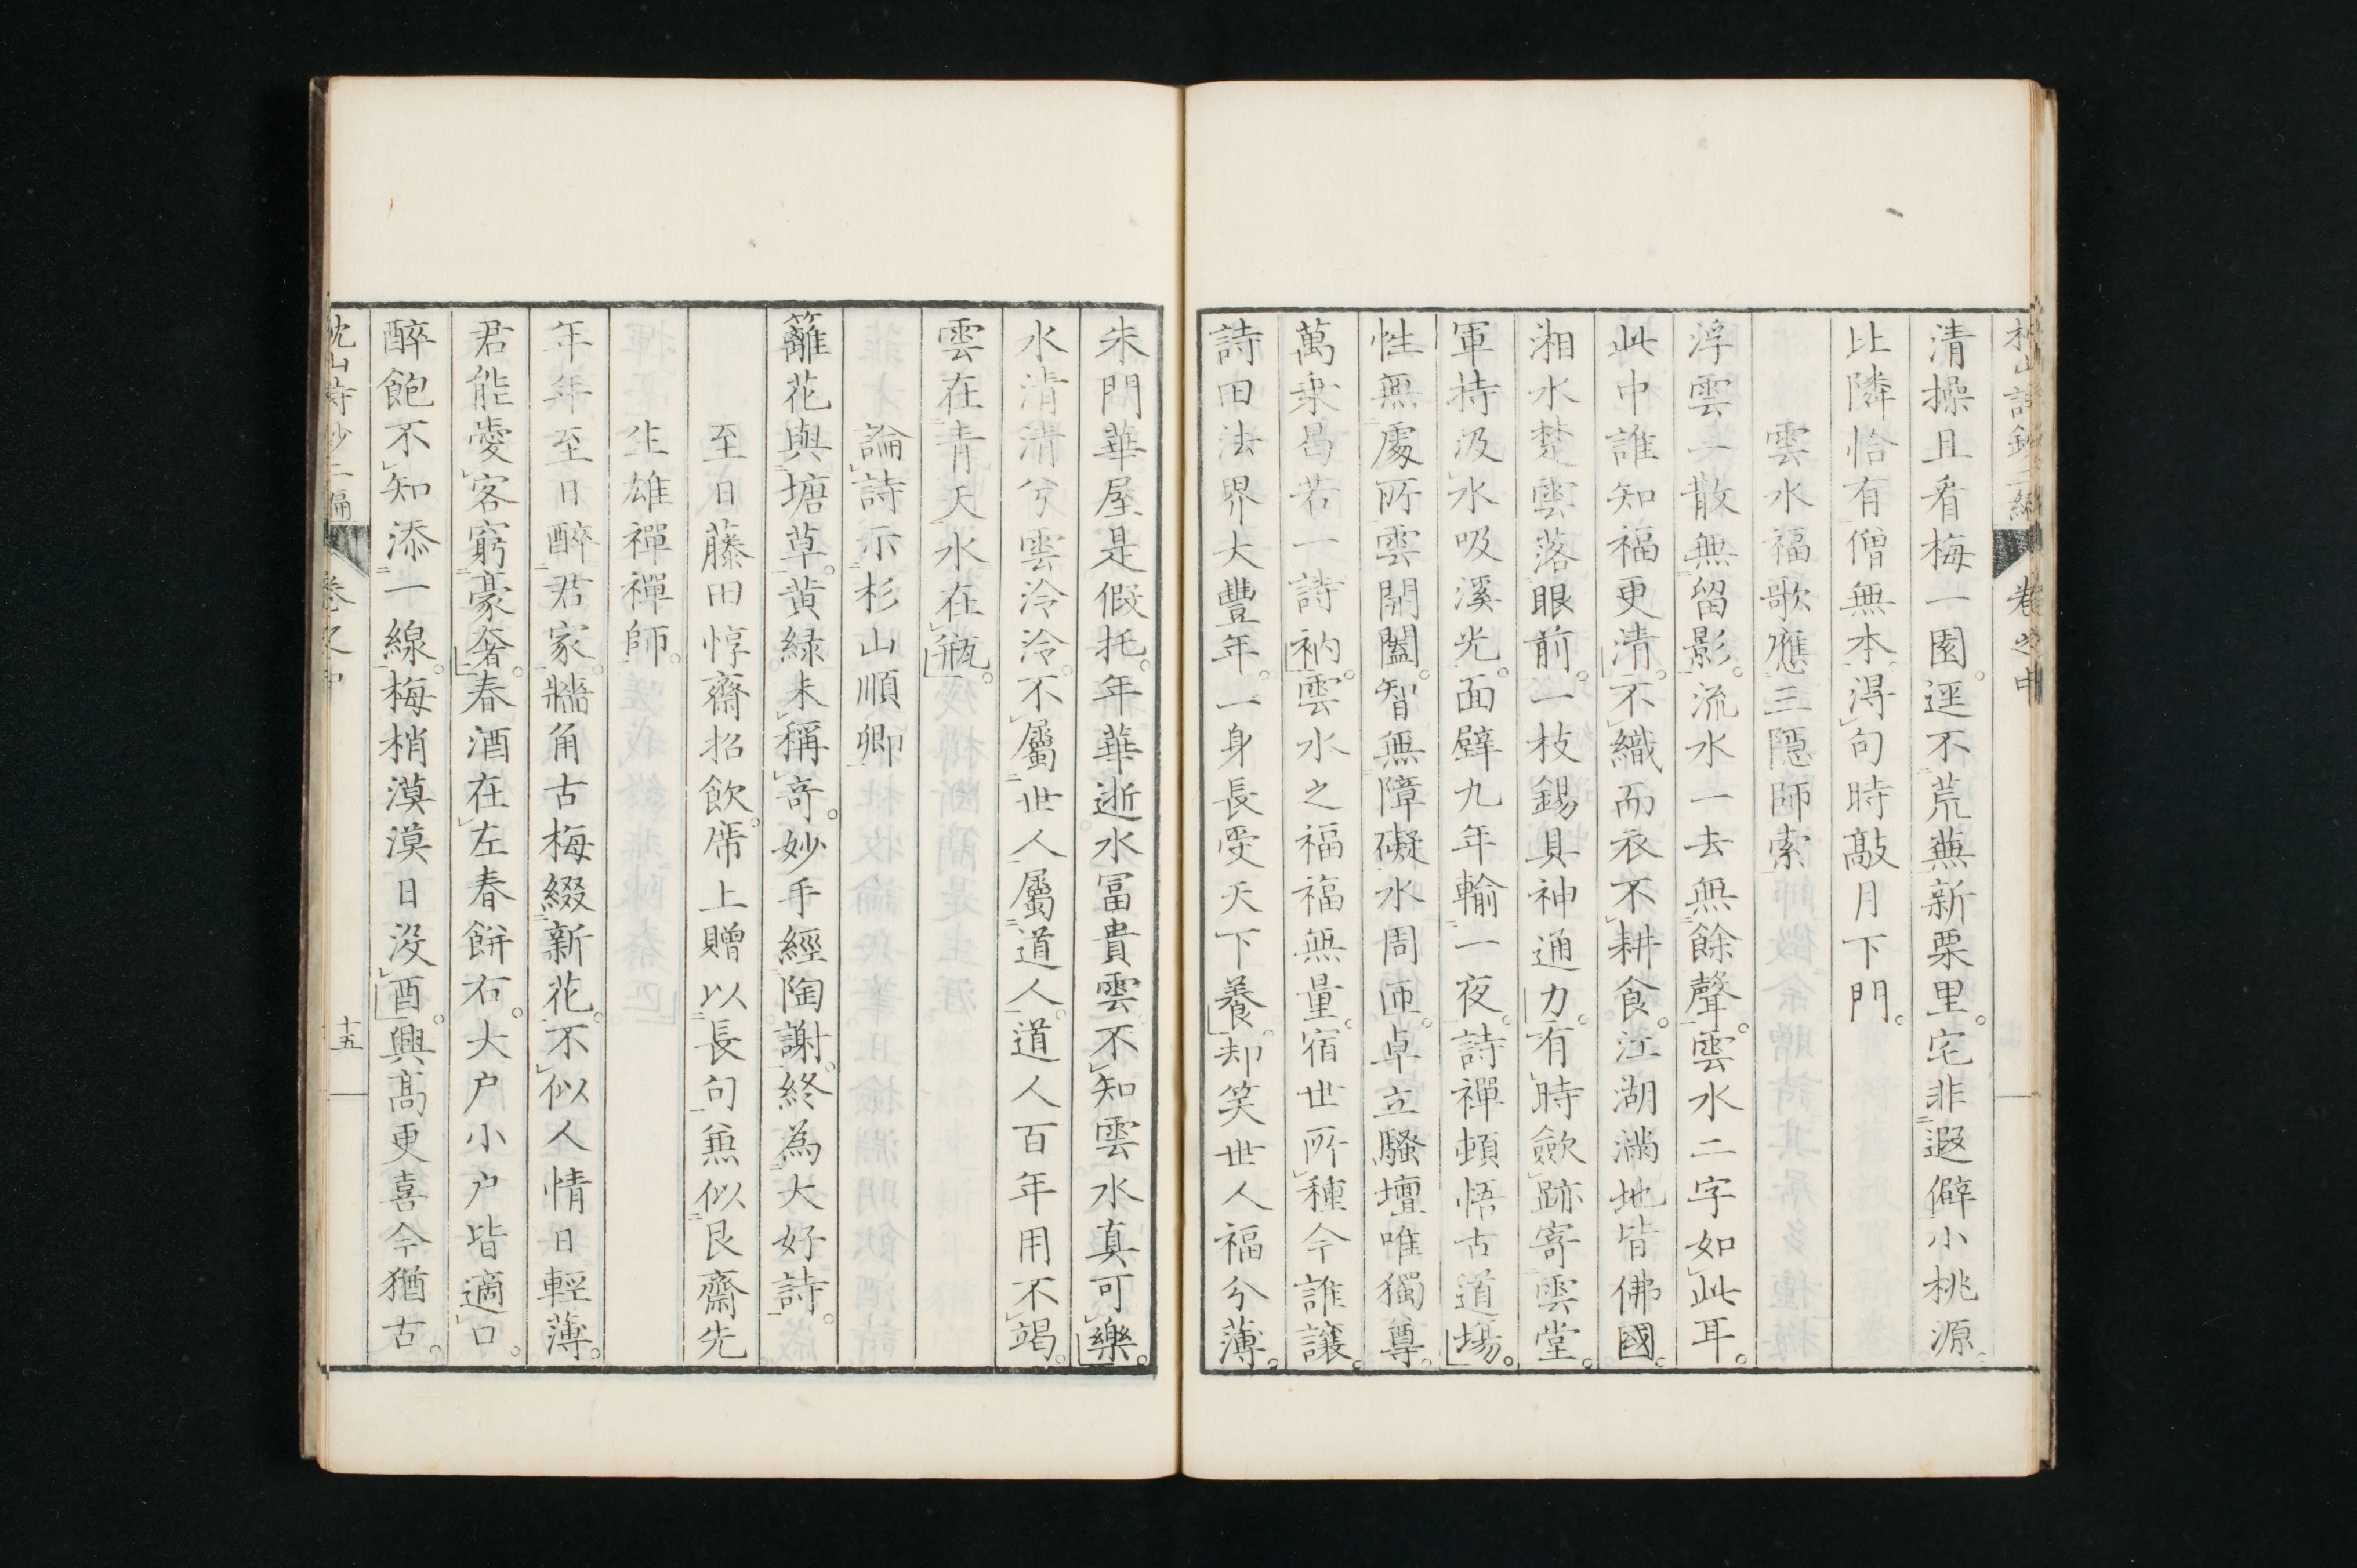 清操且看梅一園。逕不荒蕪新栗里。宅非遐僻小桃源。
比隣恰有僧無本。得句時敲月下門。
雲水福歌應三隱師索
浮雲一散無留影。流水一去無餘聲。雲水二字如此耳。
此中誰知福更清。不織而衣不耕食。江湖滿地皆佛國。
湘水楚雲落眼前。一枝錫具神通力。有時斂跡寄雲堂。
軍持汲水吸溪光。面壁九年輸一夜。詩禪頓悟古道場。
性無處所雲開闔。智無障礙水周匝。卓立騷壇唯獨尊。
萬乗曷若一詩衲。雲水之福福無量。宿世所種今誰讓。
詩田法界大豐年。一身長受天下養。却笑世人福兮薄。
朱門華屋是假托。年華逝水冨貴雲不知雲水真可樂。
水清清兮雲泠泠。不屬世人屬道人。道人百年用不竭。
雲在青天水在瓶。
論詩示杉山順卿
籬花與塘草。黄緑未稱奇。妙手經陶謝。終為大好詩。
至日藤田惇齋招飲。席上贈以長句兼似艮齋先
生雄禪禪師。
年年至日醉君家。牆角古梅綴新花。不似人情日輕薄。
君能愛客窮豪奢。春酒在左春餅右。大户小户皆適口。
醉飽不知添一線。梅梢漠漠日没酉。興髙更喜今猶古。
枕山詩鈔二編
卷之中
十五